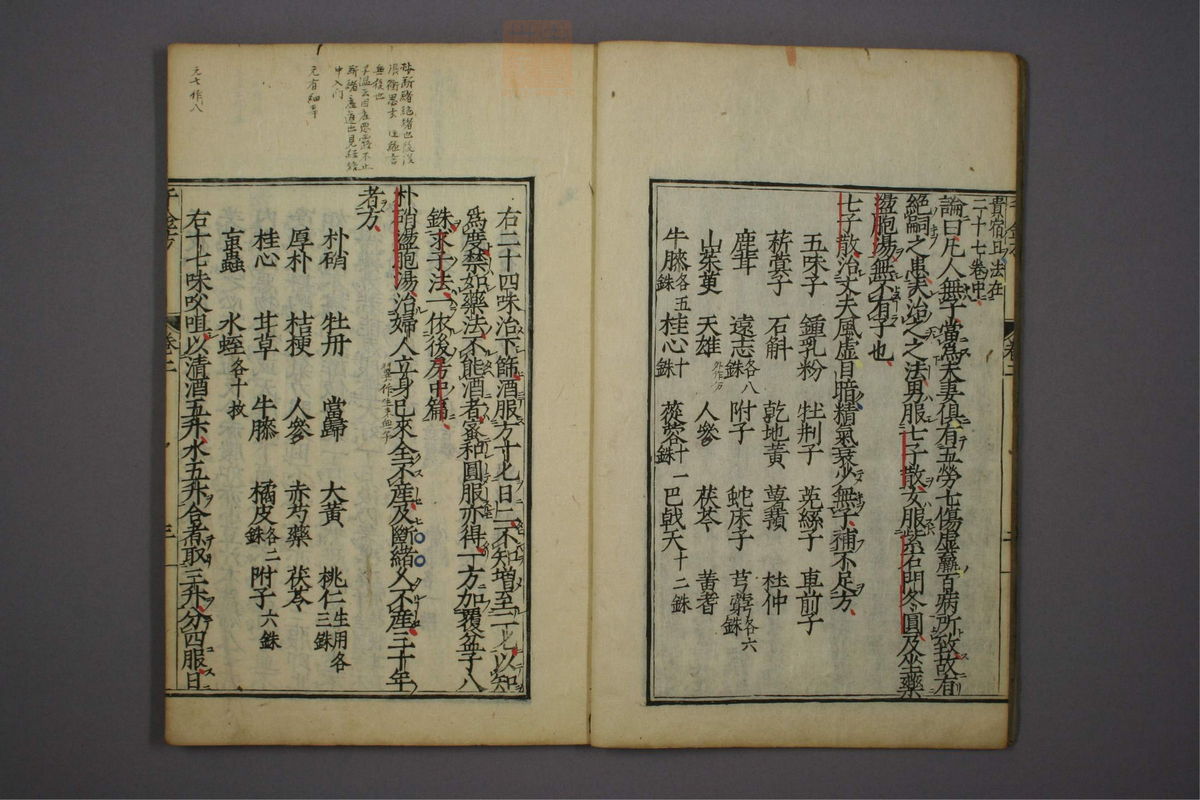 貴宿日法在
二十七卷中
論曰凡人無子當爲夫妻俱有五勞七傷虛羸百病所致故有
絕嗣之患夫治之之法男服七子散女服紫石門冬圓及坐藥
盪胞湯無不有子也
七子散治丈夫風虛目暗精氣衰少無子補不足方
五味子 鍾乳粉 牡荊子 莵絲子 車前子
菥蓂子 石斛 乾地黃 薯蕷 杜仲
鹿茸 遠志各八銖 附子 蛇床子 芎藭各六銖
山茱萸 天雄 人參 茯苓 黃耆
牛膝各五銖 桂心十銖 蓯蓉十一銖 巴戟天十二銖
右二十四味治下篩酒服方寸匕日二不知增至二匕以知
爲度禁如藥法不能酒者蜜和圓服亦得一方加覆盆子八
銖求子法一依後房中篇
朴硝盪胞湯治婦人立身已來全不產及斷緒久不產三十年
者方
朴硝 牡丹 當歸 大黃 桃仁生用各三銖
厚朴 桔梗 人參 赤芍藥 茯苓
桂心 甘草 牛膝 橘皮各二銖 附子六銖
䖟蟲 水蛭各十枚
右十七味㕮咀以清酒五升水五升合煮取三升分四服日
元有細辛
元七作八